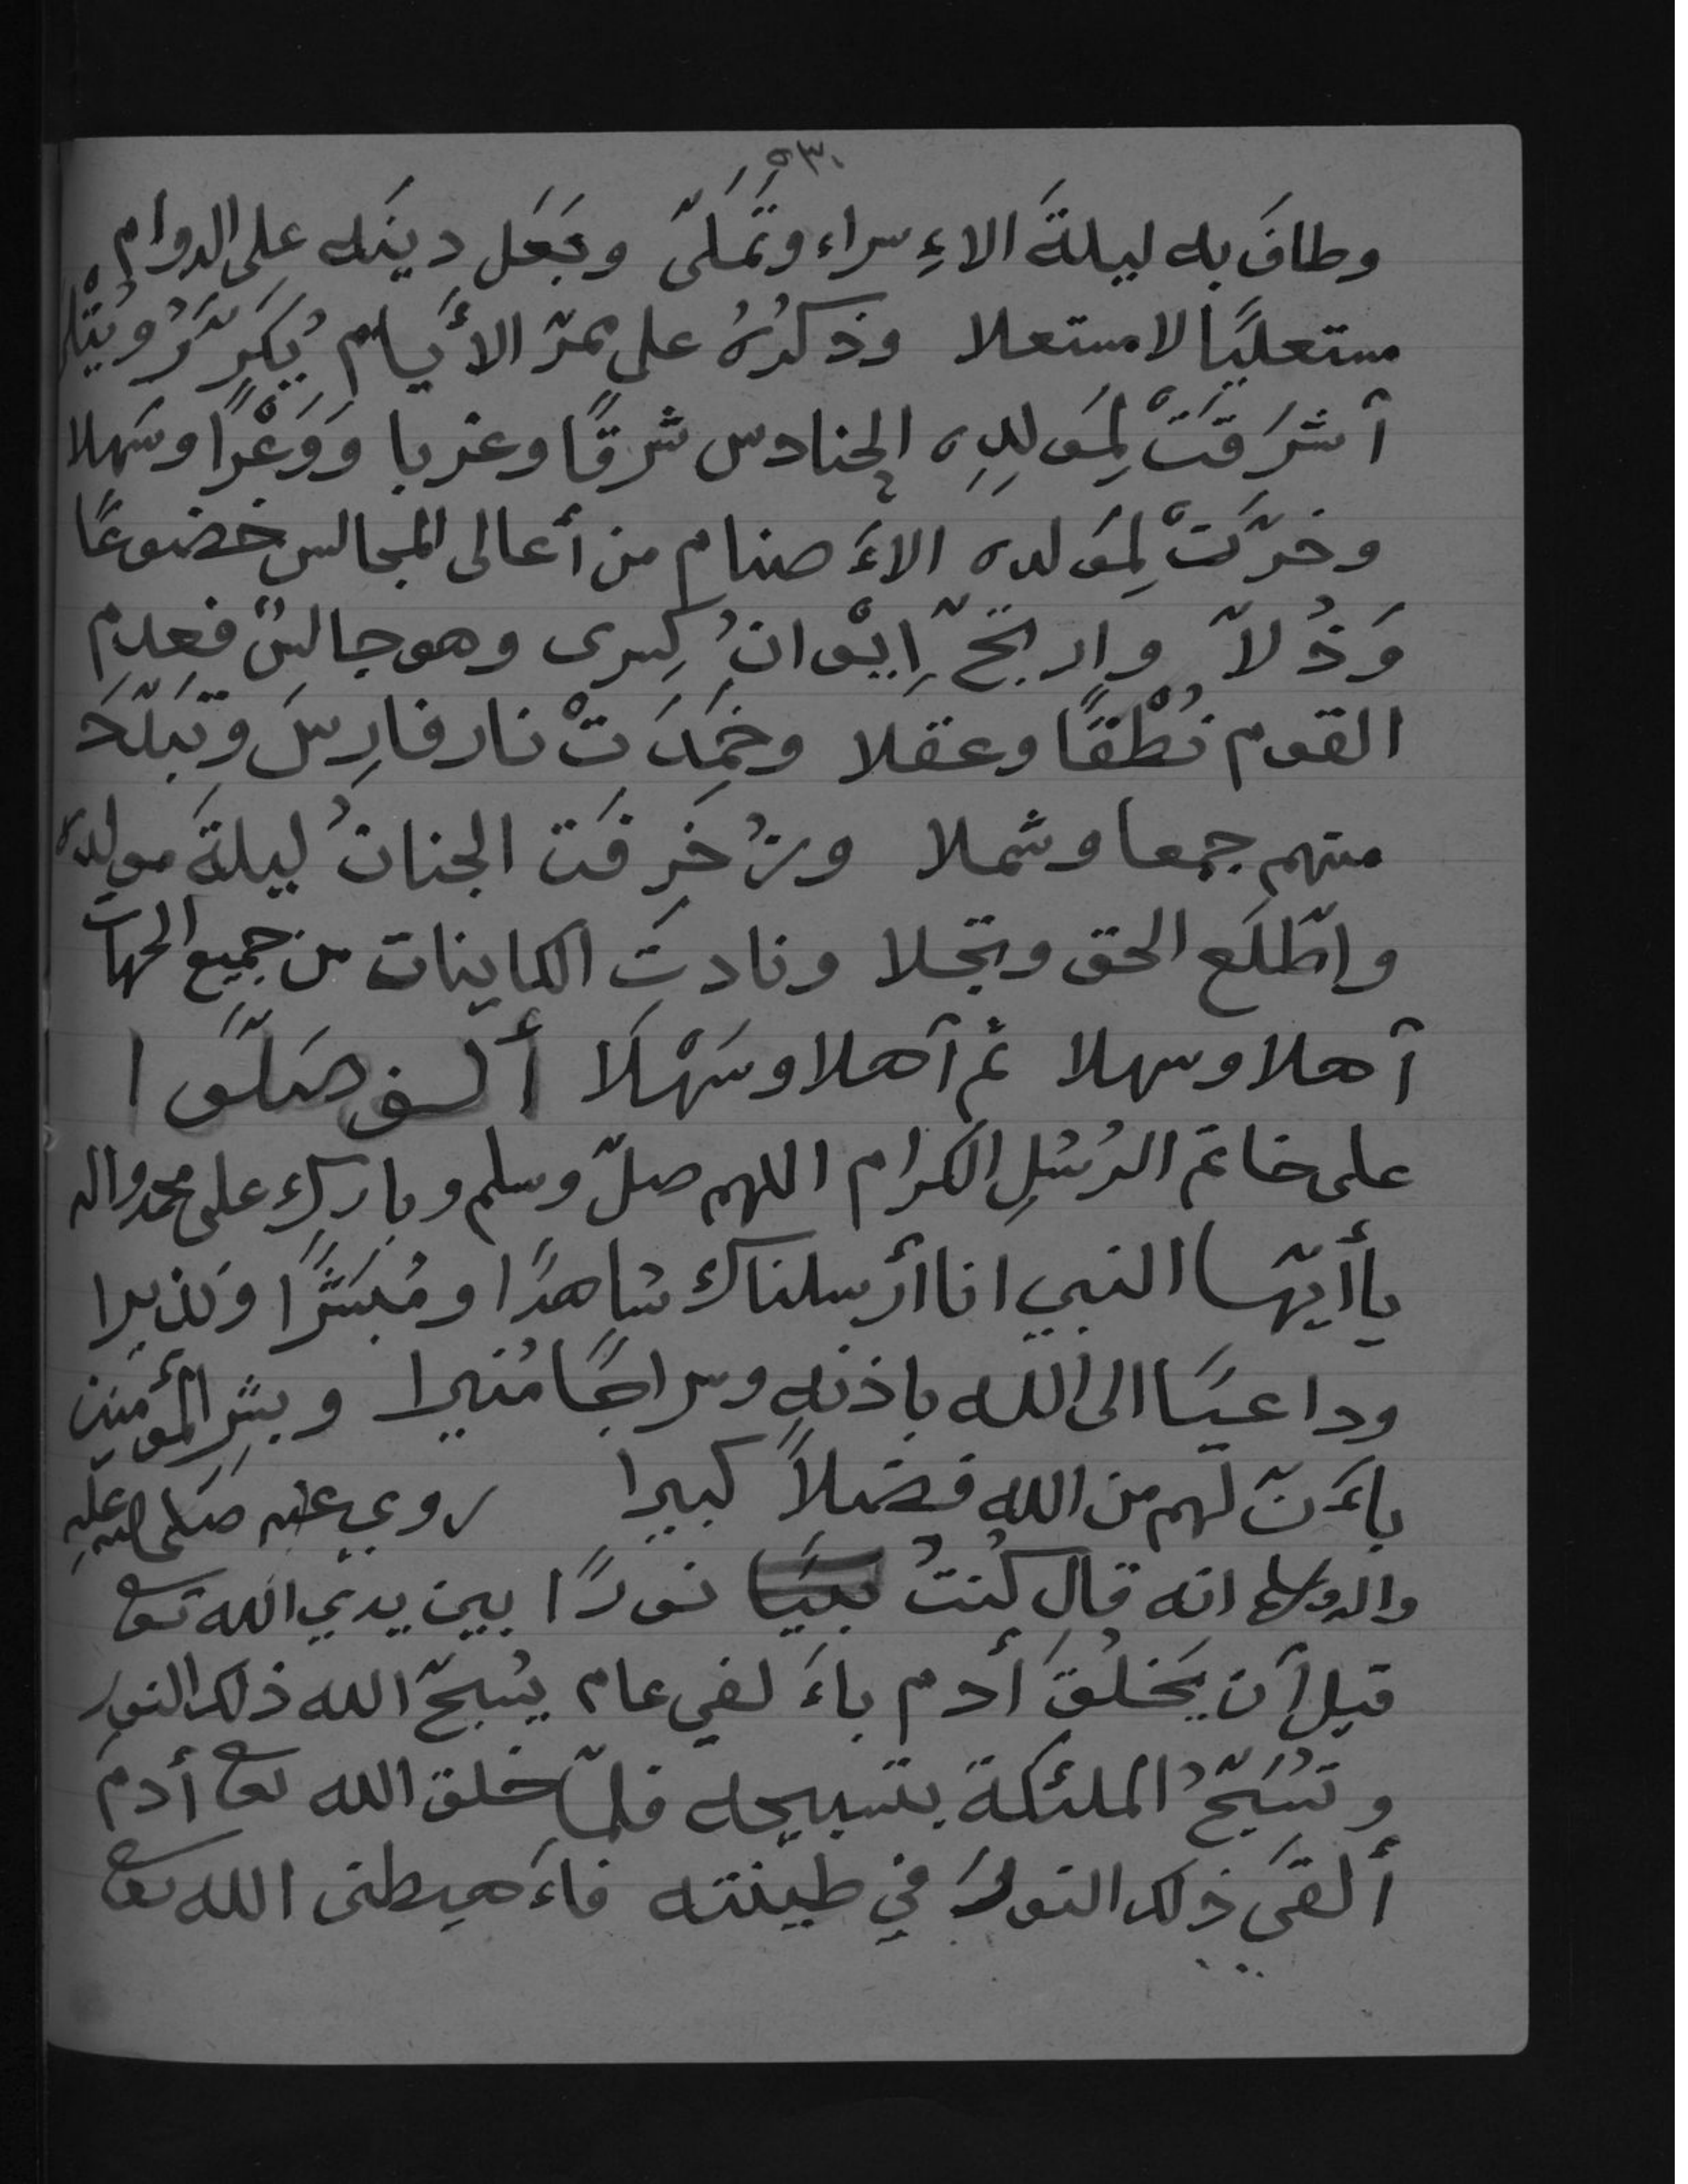 ٥٣٠
وطافَ به ليلةَ الاءِسراء وتَمَلَّى وجَعَل دينَه على الدوام
مستعليًا لا مستعلا وذكرُهُ على ممرّ الأيام يُكَرَّرُ ويُتْلى
آشرَقَتْ لِمَولِدِه الحنادس شرقًا وغربا وَوَعْرًا وسَهلا
وخرّتْ لِمَولده الاءَصنام من أعالى المجالس خضوعًا
وَذُلاّ وارتجّ اِيْوانُ كِسرى وهو جالسٌ فعدِم
القوم نُطْقًا وعقلا وخَمَدَتْ نار فارِسَ وتبَدَّدَ
منهم جمعا وشملا وزُخرِفَت الجنانُ ليلةَ مولده
واطّلَع الحق وتجلا ونادتِ الكاينات من جميع الجهات
آهلا وسهلا ثم آهلا وسَهْلَا ألف صَلَّوا
على خاتم الرُسُلِ الكرام اللهم صلّ وسلم وبارك على محمد واله
يأأيّها النبي انا أرسلناك شاهدًا ومُبَشّرًا ونذيرا
وداعيًا الى الله باذنهِ وسراجًا مُنيرا وبشِر المؤمنين
باءَنّ لهم من الله فضلاً كبيرا روي عنه صَلى الله عليهِ
واله وسلم انه قال كُنتُ نورًا بين يدي الله تعا
قبل آن يَخلُقَ أدم باءَلفي عام يُسبحّ الله ذلك النور
وتسَبّحُ الملئكة بتسبيحه فلمّا خلق الله تعا أدمَ
ألقَى ذلك النورَ في طينته فاءَهبطنى الله تعا